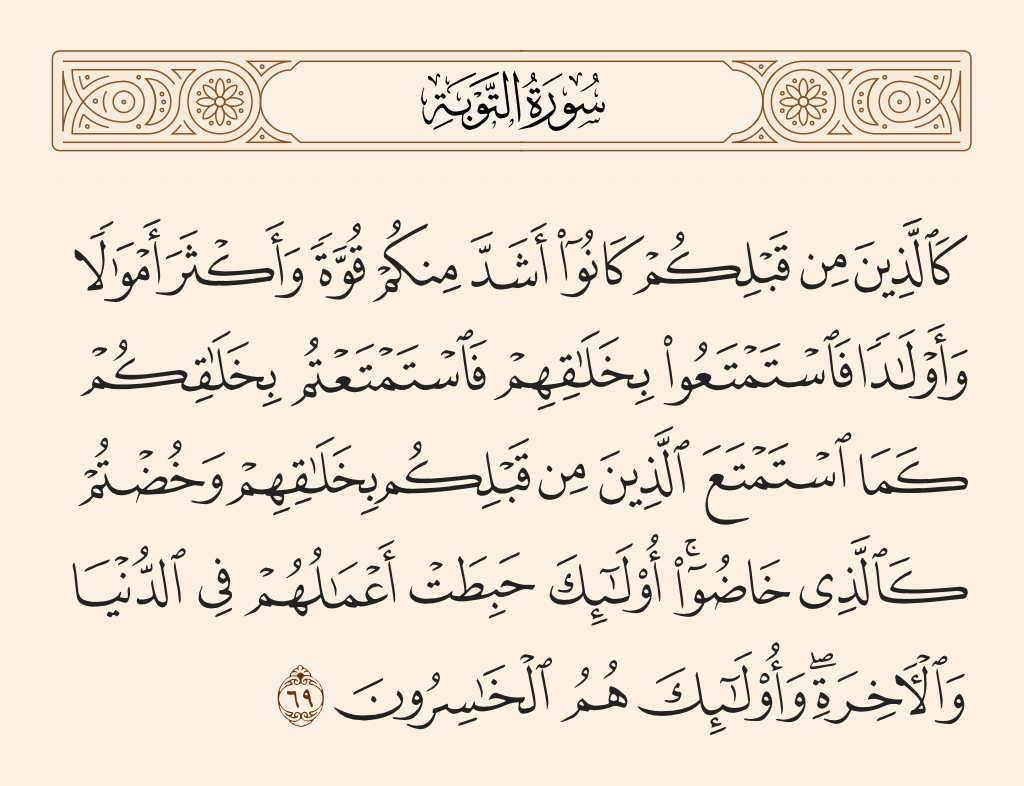 سُورَةُ التَّوْبَةِ
كَٱلَّذِينَ مِن قَبْلِكُمْ كَانُوٓا۟ أَشَدَّ مِنكُمْ قُوَّةً وَأَكْثَرَ أَمْوَٰلًا
وَأَوْلَـٰدًا فَٱسْتَمْتَعُوا۟ بِخَلَـٰقِهِمْ فَٱسْتَمْتَعْتُم بِخَلَـٰقِكُمْ
كَمَا ٱسْتَمْتَعَ ٱلَّذِينَ مِن قَبْلِكُم بِخَلَـٰقِهِمْ وَخُضْتُمْ
كَٱلَّذِى خَاضُوٓا۟ ۚ أُو۟لَـٰٓئِكَ حَبِطَتْ أَعْمَـٰلُهُمْ فِى ٱلدُّنْيَا
وَٱلْـَٔاخِرَةِ ۖ وَأُو۟لَـٰٓئِكَ هُمُ ٱلْخَـٰسِرُونَ ٦٩